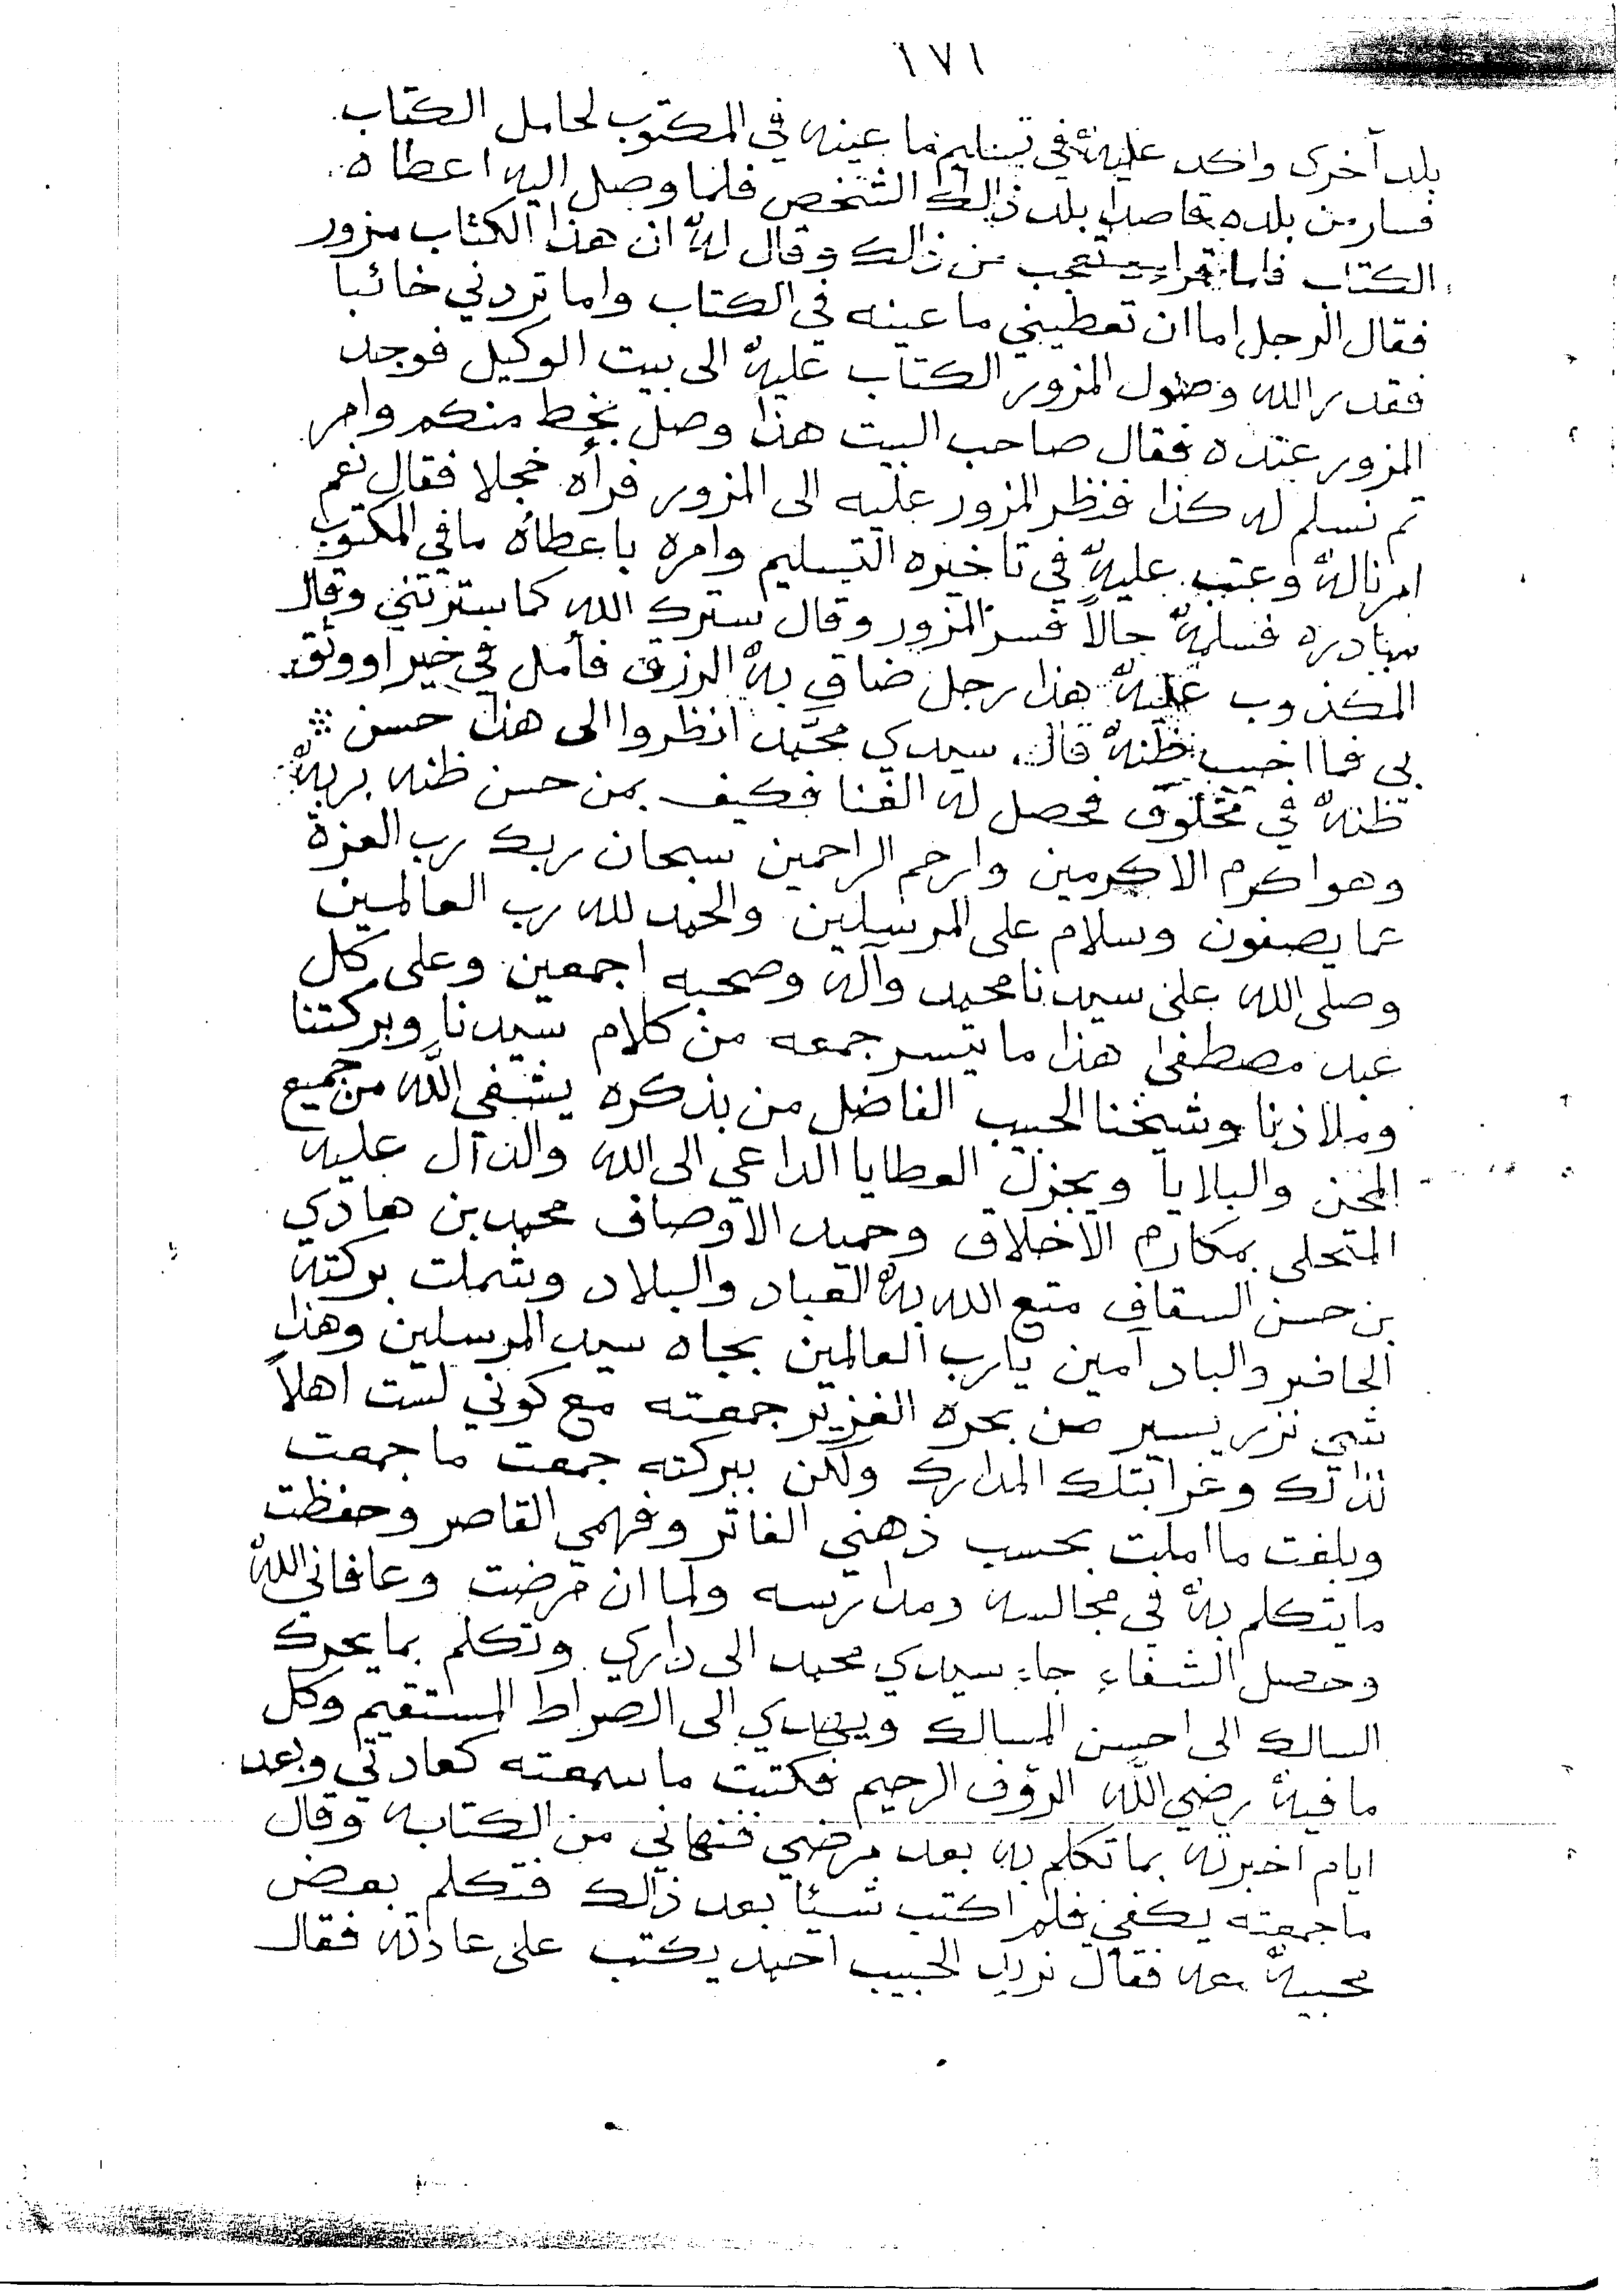 ١٧١
بلد آخرى واكد عليه في تسليم ما عينه في المكتوب لحامل الكتاب
فسار من بلده قاصدا بلد ذالك الشخص فلما وصل اليه اعطاه
الكتاب فلما قراه تعجب من ذالك وقال له ان هذا الكتاب مزور
فقال الرجل اما ان تعطيني ما عينه في الكتاب واما تردني خائبا
فقدر الله وصول المزور الكتاب عليه الى بيت الوكيل فوجد
المزور عنده فقال صاحب البيت هذا وصل بخط منكم وامر
تم نسلم له كذا فنظر المزور عليه الى المزور فرآه خجلا فقال نعم
امرنا له وعتب عليه في تاخيره التسليم وامره باعطائه ما في المكتوب
مبادره فسلمه حالاً فسر المزور وقال سترك الله كما سترتني وقال
المكذوب عليه هذا رجل ضاق به الرزق فأمل في خيرا ووثق
بي فما اخيب ظنه قال سيدي محمد انظروا الى هذا حسن
ظنه في مخلوق فحصل له الغنا فكيف بمن حسن ظنه بربه
وهو اكرم الاكرمين وارحم الراحمين سبحان ربك رب العزة
عما يصفون وسلام على المرسلين والحمد لله رب العالمين
وصلى الله على سيدنا محمد وآله وصحبه اجمعين وعلى كل
عبد مصطفى هذا ما تيسر جمعه من كلام سيدنا وبركتنا
وملاذنا وشيخنا الحبيب الفاضل من بذكره يشفي الله من جميع
المحن والبلايا ويجزل العطايا الداعي الى الله والدآل عليه
المتحلى بمكارم الاخلاق وحميد الاوصاف محمد بن هادي
بن حسن السقاف متع الله به العباد والبلاد وشملت بركته
الحاضر والباد آمين يا رب العالمين بجاه سيد المرسلين وهذا
شي نزر يسير من بحره الغزير جمعته مع كوني لست اهلاً
لذالك وغرابتلك المدارك ولكن ببركته جمعت ما جمعت
وبلغت ما املت بحسب ذهني الفاتر وفهمي القاصر وحفظت
ما يتكلم به في مجالسه ومدارسه ولما ان مرضت وعافاني الله
وحصل الشفاء جاء سيدي محمد الى داري وتكلم بما يحرك
السالك الى احسن المسالك ويهدي الى الصراط المستقيم وكل
ما فيه رضي الله الرؤف الرحيم فكتبت ما سمعته كعادتي وبعد
ايام اخبرته بما تكلم به بعد مرضي فنهاني من الكتابه وقال
ما جمعته يكفي فلم اكتب شيئا بعد ذالك فتكلم بعض
محبيه معه فقال نريد الحبيب احمد يكتب على عادته فقال